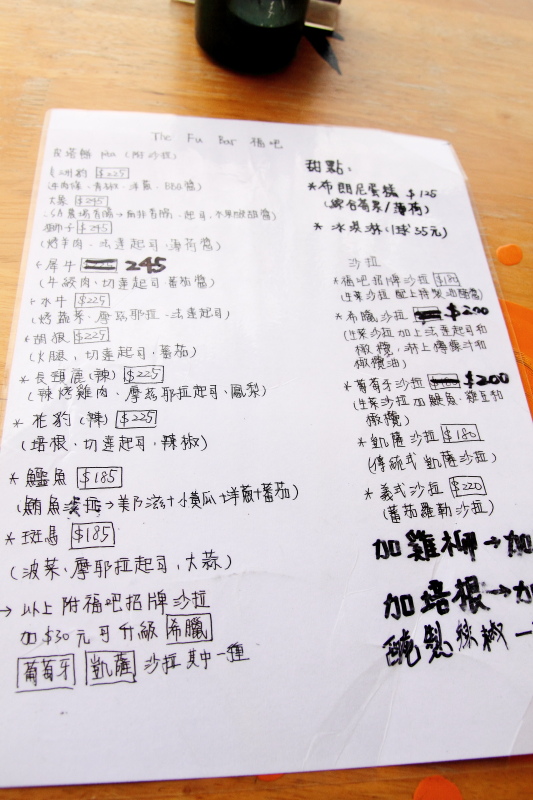 The Fu Bar 福吧
皮塔餅 pita (附沙拉)
$225
(牛肉條、青椒、洋蔥、BBQ醬)
大象 $245
獅子 $245
(烤羊肉、法達起司、薄荷醬)
* 犀牛 245
(牛絞肉、切達起司、蕃茄醬)
* 水牛 $225
(烤蔬菜、摩茲耶拉、法達起司)
* 胡狼 $225
(火腿、切達起司、蕃茄)
* 長頸鹿(辣) $225
(辣烤雞肉、摩茲耶拉起司、鳳梨)
* 花豹(辣) $225
(培根、切達起司、辣椒)
* 鱷魚 $185
(鮪魚沙拉→美乃滋+小黃瓜+洋蔥+蕃茄)
* 斑馬 $185
(菠菜、摩耶拉起司、大蒜)
→ 以上附福吧招牌沙拉
加$30元可升級 希臘
葡萄牙 凱薩 沙拉其中一種
甜點:
* 布朗尼蛋糕 $125
(綜合莓果/薄荷)
* 冰淇淋(1球35元)
沙拉
* 福吧招牌沙拉 $180
(生菜沙拉配上特製油醋醬)
* 希臘沙拉 $200
(生菜沙拉加上法達起司和
橄欖,淋上檸檬汁和
橄欖油)
* 葡萄牙沙拉 $200
(生菜沙拉加鯷魚、雞豆和
橄欖)
* 凱薩沙拉 $180
(傳統式凱薩沙拉)
* 義式沙拉 $220
(蕃茄羅勒沙拉)
加雞柳→加
加培根→加
醃製辣椒一